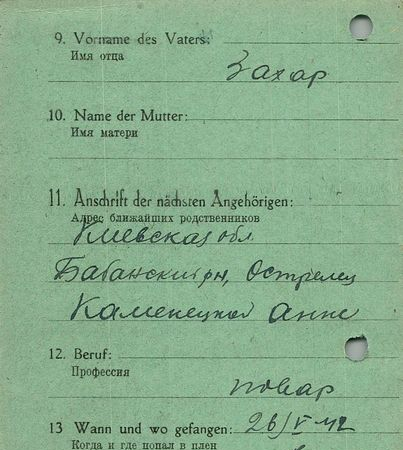 9. Vorname des Vaters:
Имя отца
Захар
10. Name der Mutter:
Имя матери
11. Anschrift der nächsten Angehörigen:
Адрес ближайших родственников
Киевская обл.
Бабанский рн, Острелец
Каменецкой Анне
12. Beruf:
Профессия
повар
13 Wann und wo gefangen: 26/V 42
Когда и где попал в плен